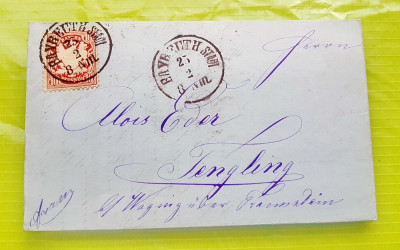 BAYREUTH STADT
25
2
8 NM.
BAYREUTH STADT
25
2
8 NM.
Herrn
Alois Eder
Tengling
b/ Waging über Traunstein
franco